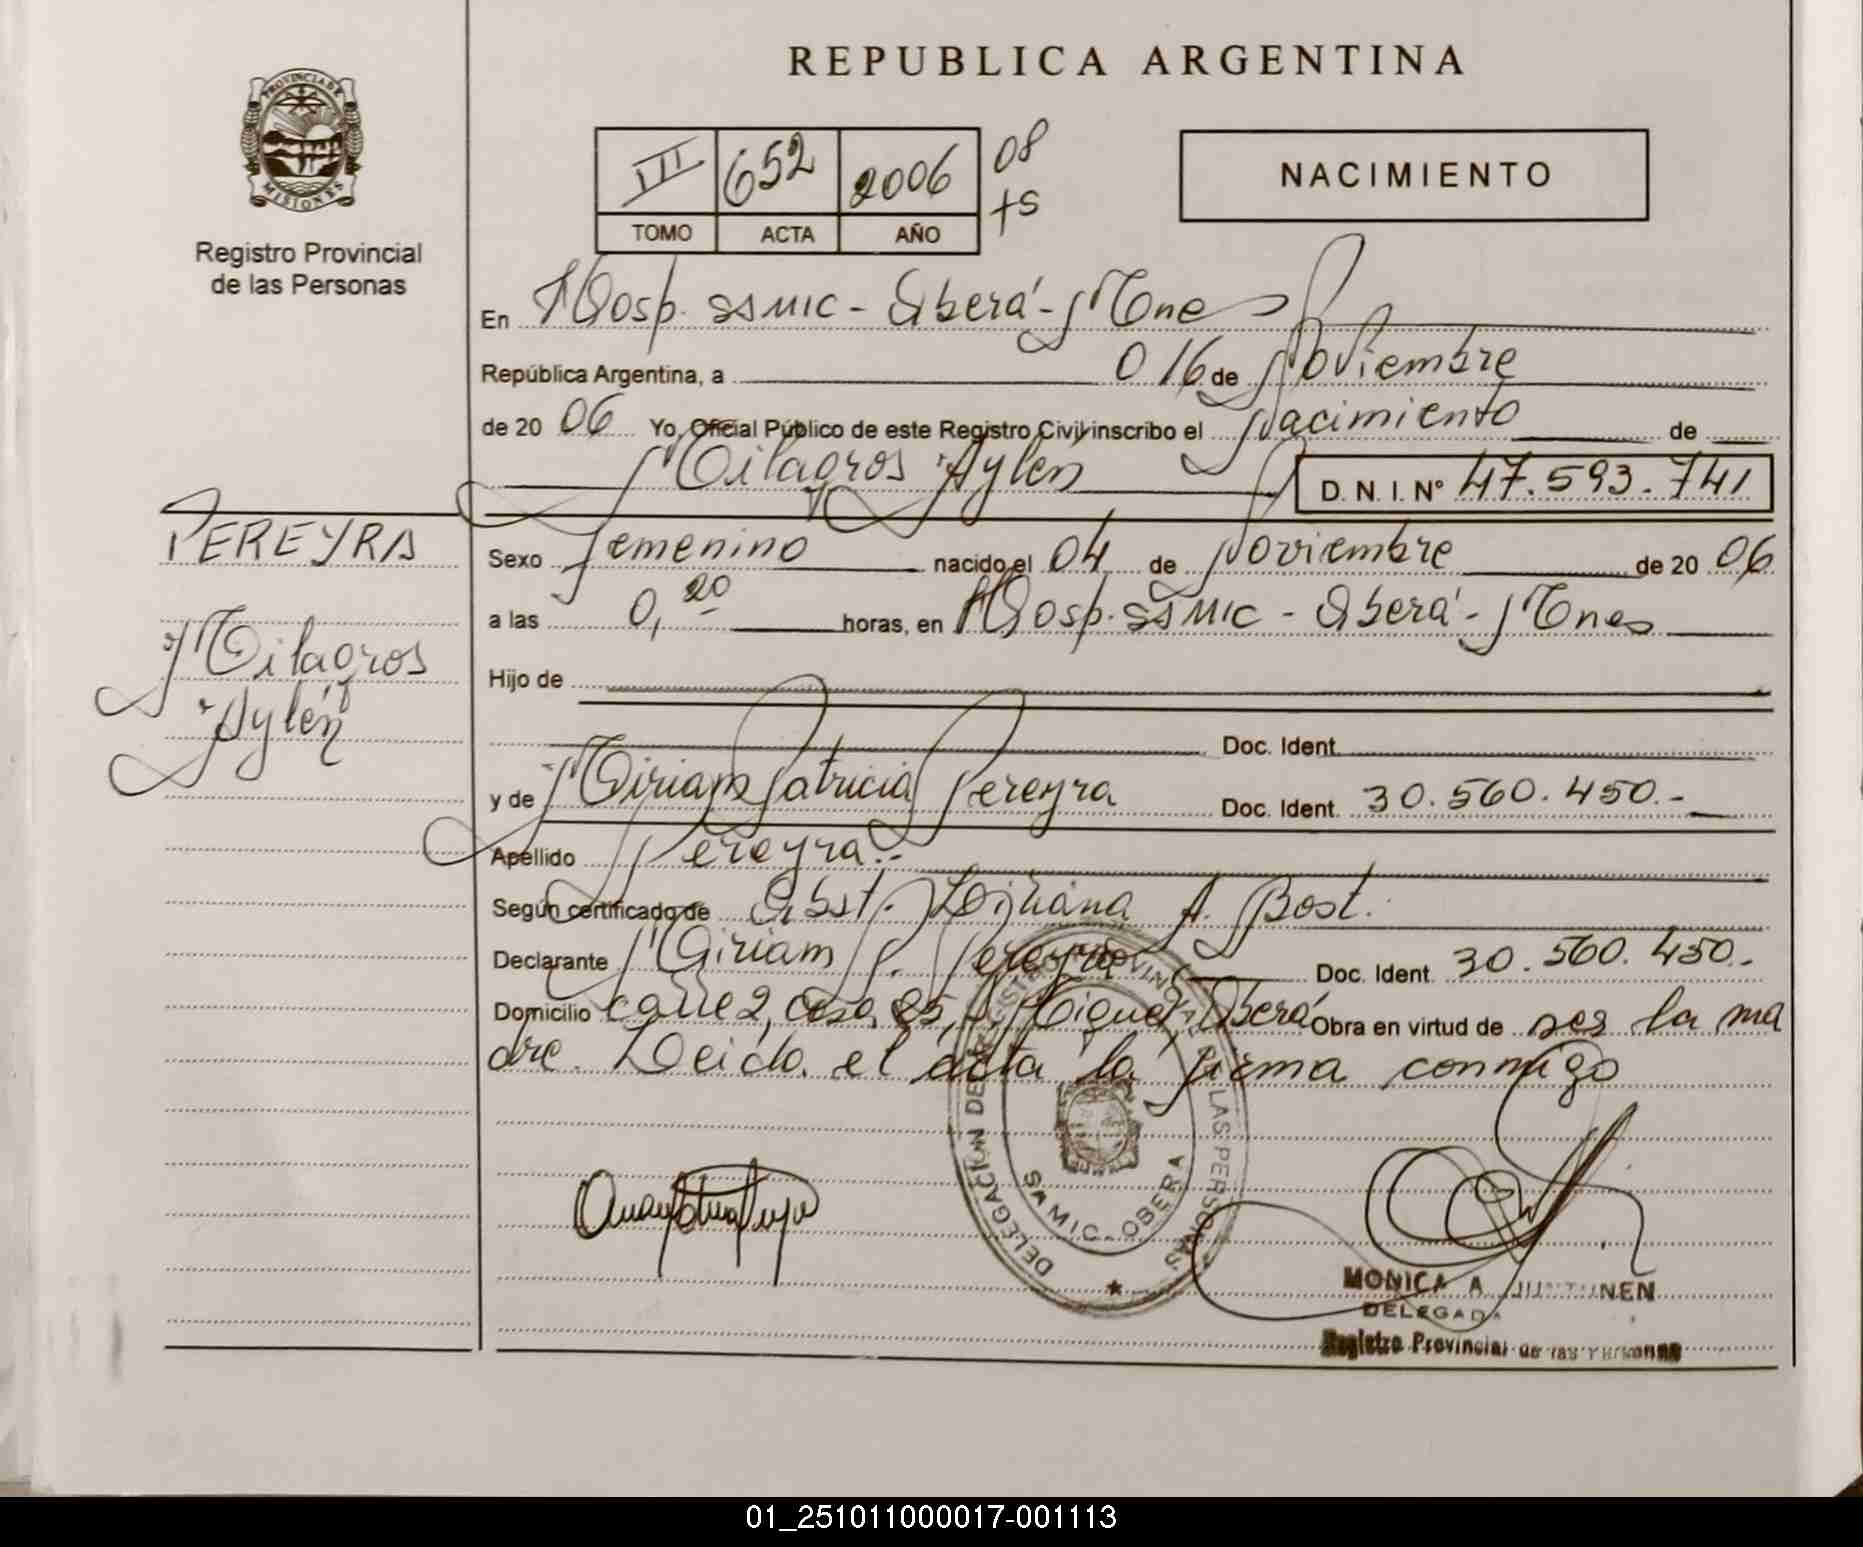 REPUBLICA ARGENTINA
PROVINCIA DE
MISIONES
Registro Provincial
de las Personas
III 652 2006 08
TOMO ACTA AÑO
NACIMIENTO
En Hosp. SAMIC - Oberá - Mnes
República Argentina, a 016 de Noviembre
de 20 06 Yo, Oficial Público de este Registro Civil inscribo el Nacimiento de
Milagros Aylén D. N. I. Nº 47.593.741
PEREYRA
Milagros
Aylén
Sexo Femenino nacido el 04 de Noviembre de 20 06
a las 0,20 horas, en Hosp. SAMIC - Oberá - Mnes
Hijo de
Doc. Ident.
y de Miriam Patricia Pereyra Doc. Ident. 30.560.450.-
Apellido Pereyra.-
Según certificado de Obst. A. Bost.
Declarante Miriam P. Pereyra Doc. Ident. 30.560.450.-
Domicilio calle 2, casa 85, Oberá Obra en virtud de ser la ma
dre. Leída el acta la firma conmigo
DELEGACION DEL REGISTRO PROVINCIAL DE LAS PERSONAS
SAMIC - OBERA
MONICA A
DELEGADA
Registro Provincial de las Personas
01_251011000017-001113